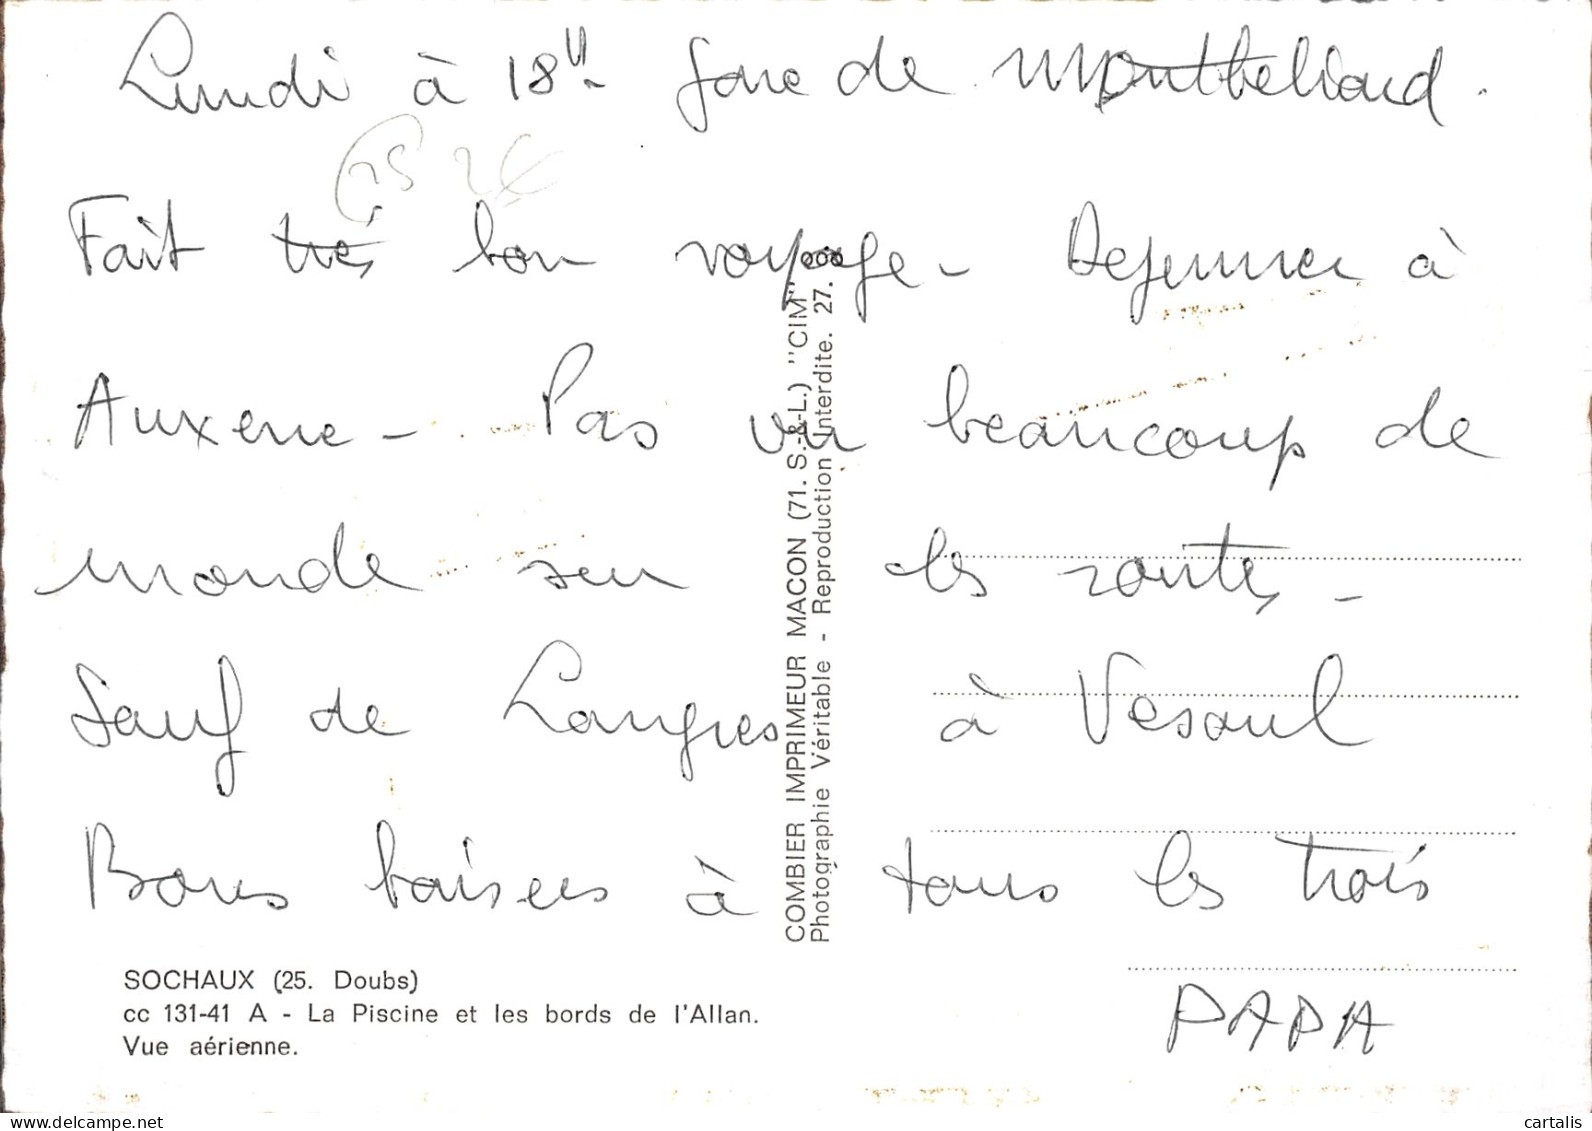 Lundi à 18H- gare de Montbeliard.
25 2€
Fait très bon voyage - Dejeuner à
Auxerre - Pas vu beaucoup de
monde sur les routes -
Sauf de Langres à Vesoul
Bons baisers à tous les trois
PAPA
COMBIER IMPRIMEUR MACON (71. S.-&-L.) "CIM"
Photographie Véritable - Reproduction Interdite. 27.
SOCHAUX (25. Doubs)
cc 131-41 A - La Piscine et les bords de l'Allan.
Vue aérienne.
cartalis